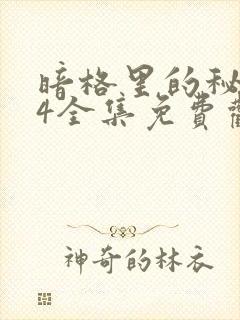 暗格里的秘
4全集免費
神奇的林衣